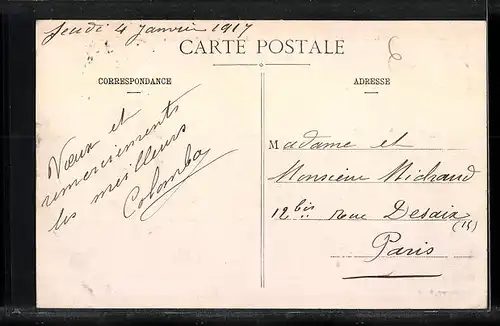 Jeudi 4 janvier 1917
CARTE POSTALE
6
CORRESPONDANCE
Vœux et
remerciements
les meilleurs
Colomba
ADRESSE
Madame et
Monsieur Michaud
12 bis rue Desaix
(15)
Paris